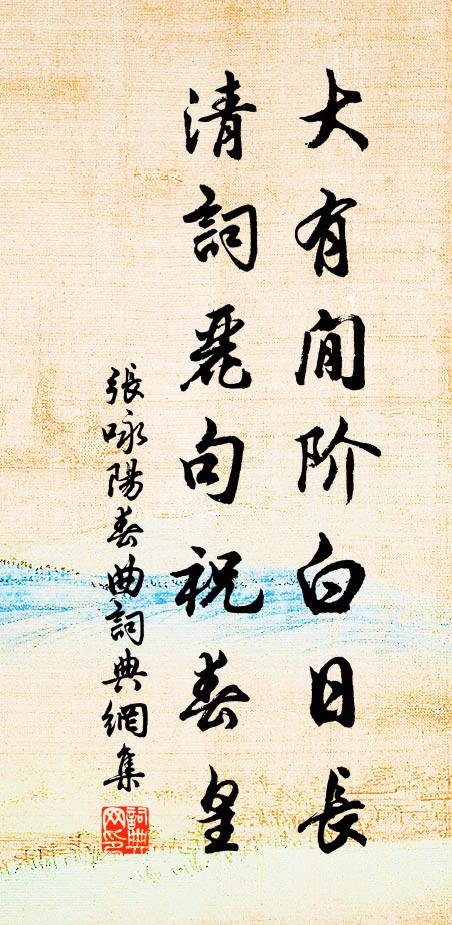 大有閒阶白日長
清詞麗句祝春皇
張咏陽春曲詞典網集
詞典网印